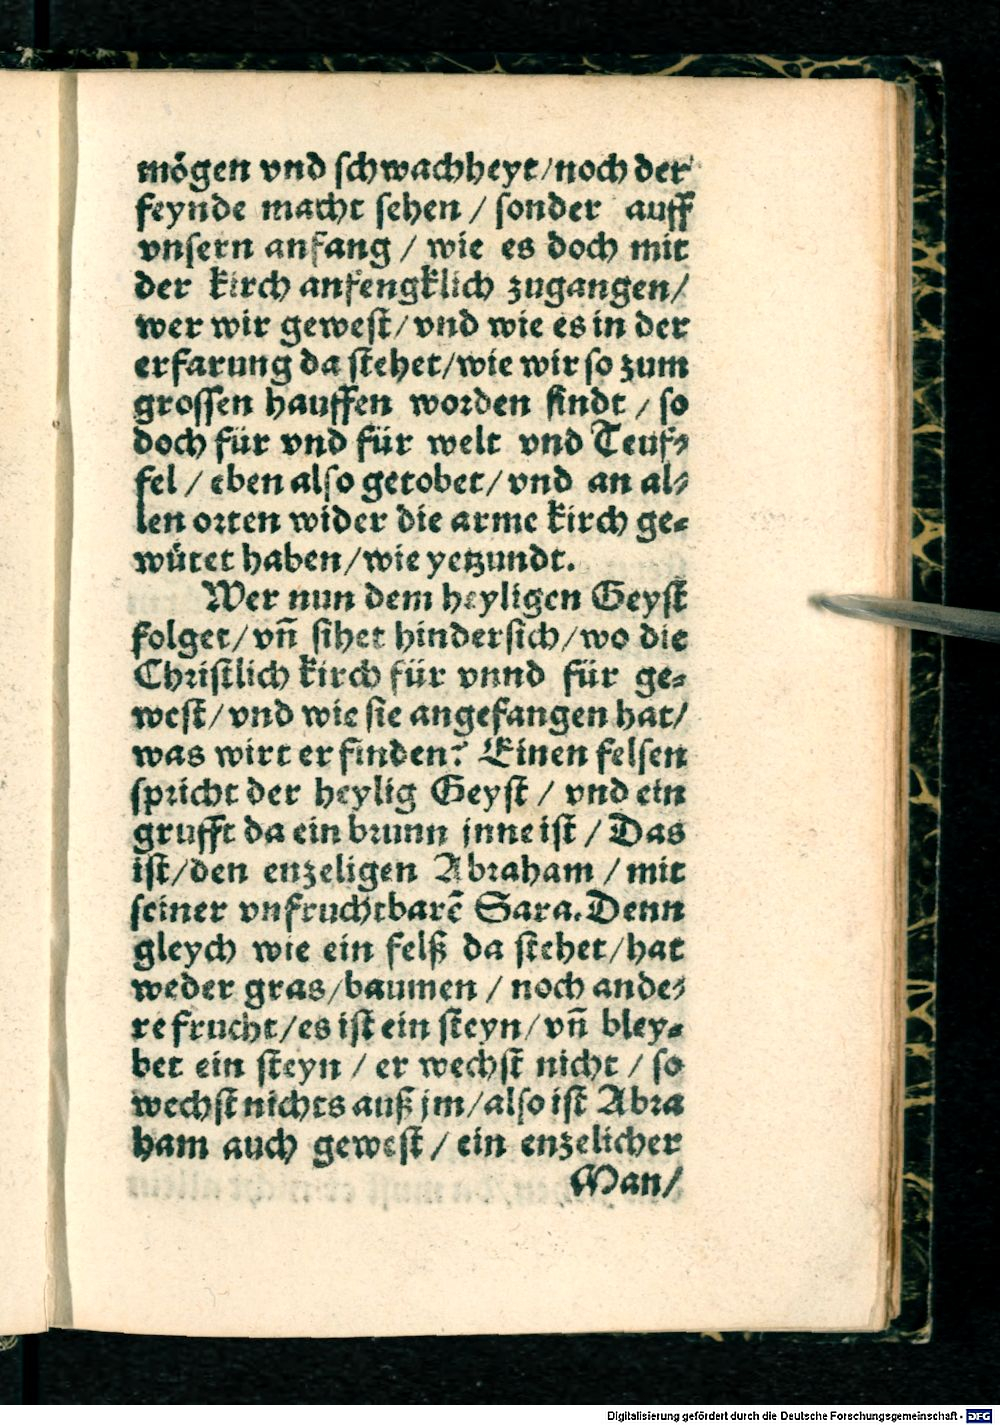 mögen vnd ſchwachheyt/noch der
feynde macht ſehen / ſonder auff
vnſern anfang / wie es doch mit
der kirch anfengklich zugangen/
wer wir geweſt/vnd wie es in der
erfarung da ſtehet/wie wir ſo zum
groſſen hauffen worden ſindt / ſo
doch für vnd für welt vnd Teuf⸗
fel / eben alſo getobet/vnd an al⸗
len orten wider die arme kirch ge⸗
wütet haben/wie yetzundt.
Wer nun dem heyligen Geyſt
folget/vñ ſihet hinderſich/wo die
Chriſtlich kirch für vnnd für ge⸗
weſt/vnd wie ſie angefangen hat/
was wirt er finden? Einen felſen
ſpricht der heylig Geyſt / vnd ein
grufft da ein brunn jnne iſt / Das
iſt/den enzeligen Abraham / mit
ſeiner vnfruchtbarẽ Sara. Denn
gleych wie ein felß da ſtehet/hat
weder gras/baumen / noch ande⸗
re frucht/es iſt ein ſteyn/vñ bley⸗
bet ein ſteyn / er wechſt nicht / ſo
wechſt nichts auß jm/alſo iſt Abra
ham auch geweſt / ein enzelicher
Man/
Digitalisierung gefördert durch die Deutsche Forschungsgemeinschaft - DFG